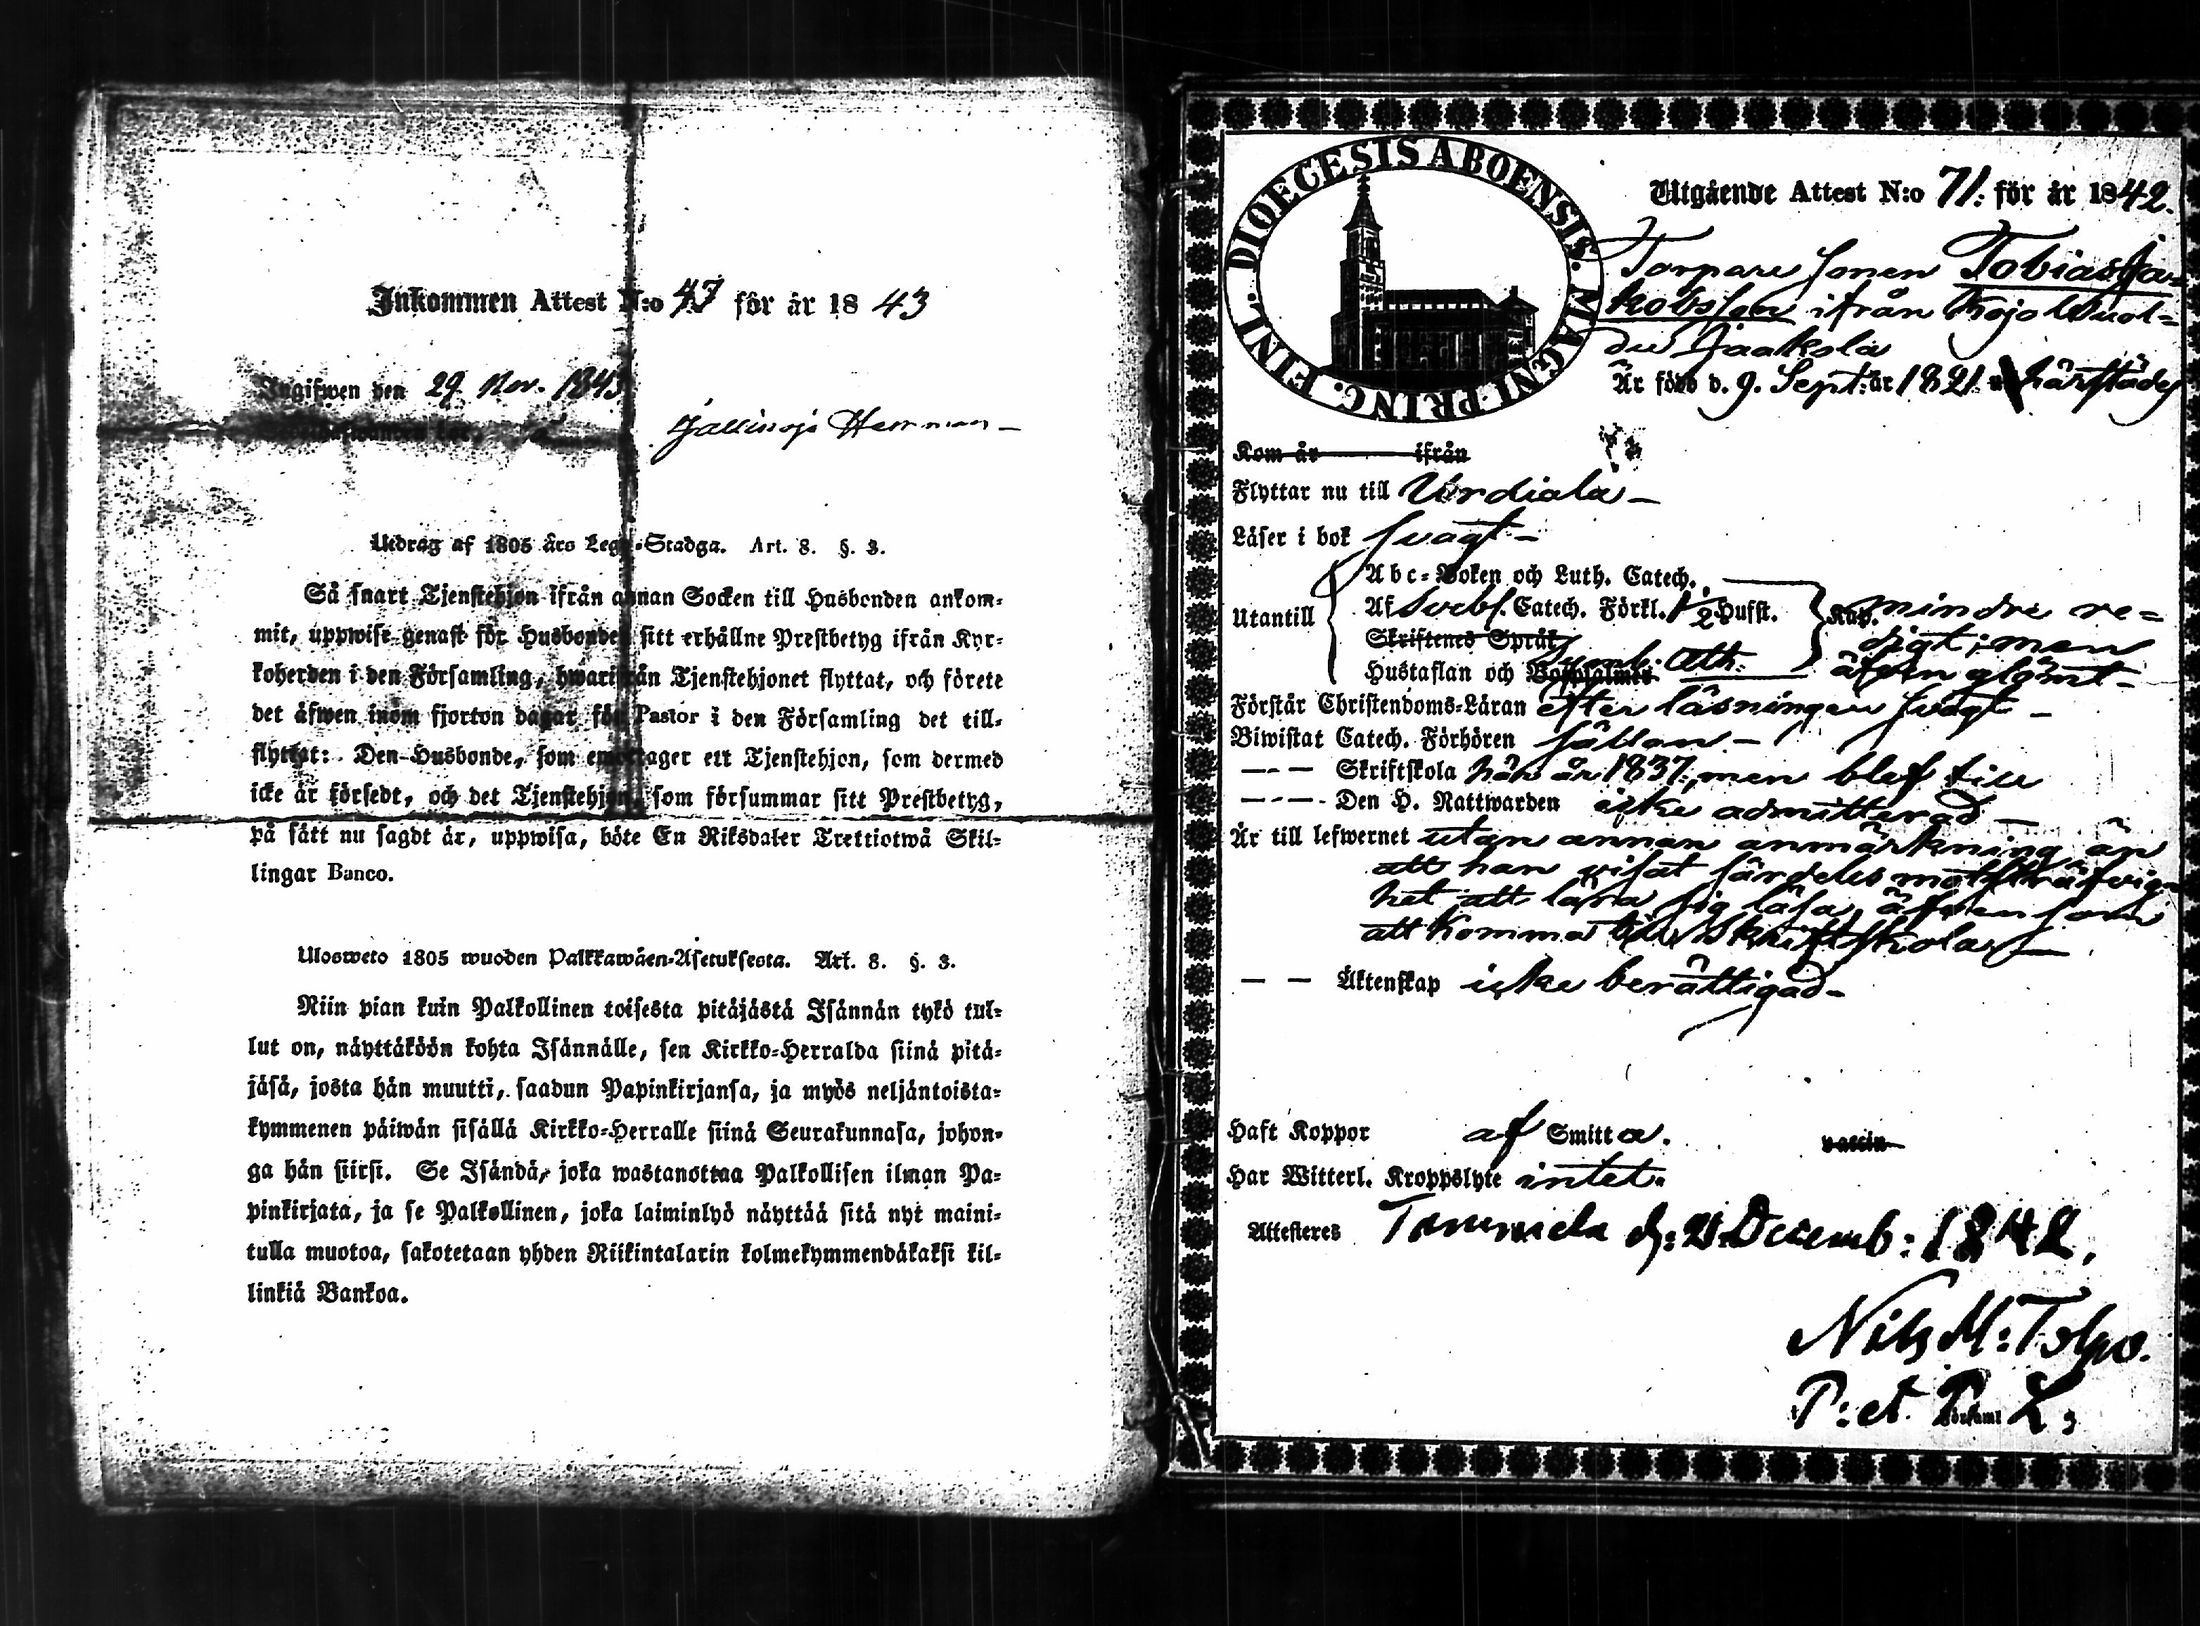 Inkommen Attest N:o 47 för år 1843
Ingifwen den 29 Nov. 1843
Herrman
Utdrag af 1805 års Lego-Stadga. Art. 8. §. 3.
Så snart Tjenstehjon ifrån annan Socken till Husbonden ankom-
mit, uppwise genast för Husbonden sitt erhållne Prestbetyg ifrån Kyr-
koherden i den Församling, hwarifrån Tjenstehjonet flyttat, och förete
det äfwen inom fjorton dagar för Pastor i den Församling det till-
flyttat: Den Husbonde, som emottager ett Tjenstehjon, som dermed
icke är försedt, och det Tjenstehjon, som försummar sitt Prestbetyg,
på sätt nu sagdt är, uppwisa, böte En Riksdaler Trettiotwå Skil-
lingar Banco.
Ulosweto 1805 wuoden Palkkawäen-Asetuksesta. Art. 8. §. 3.
Niin pian kuin Palkollinen toisesta pitäjästä Isännän tykö tul-
lut on, näyttäköön kohta Isännälle, sen Kirkko-Herralda siinä pitä-
jäsä, josta hän muutti, saadun Papinkirjansa, ja myös neljäntoista-
kymmenen päiwän sisällä Kirkko-Herralle siinä Seurakunnasa, johon-
ga hän siirsi. Se Isändä, joka wastanottaa Palkollisen ilman Pa-
pinkirjata, ja se Palkollinen, joka laiminlyö näyttää sitä nyt maini-
tulla muotoa, sakotetaan yhden Riikintalarin kolmekymmendäkaksi kil-
linkiä Bankoa.
DIOECESIS ABOENSIS. MAGNI PRINC. FINL.
Utgående Attest N:o 71. för år 1842.
Torpare sonen Tobias Ja-
kobsson ifrån Kojo
Jaakola
Är född d. 9. Sept. år 1821 härstädes
Kom år ifrån
Flyttar nu till Urdiala
Läser i bok svagt
Utantill
Abc-Boken och Luth. Catech.
Af Svebs. Catech. Förkl. 1/2 Hufst. Kap. mindre re-
Skriftenes Språk digt; men
Hustaflan och Botpsalmer Symb. Ath. äfven glömt
Förstår Christendoms-Läran efter läsningen svagt
Biwistat Catech. Förhören sällan
— - — Skriftskola här år 1837, men blef till
— - — Den H. Nattwarden icke admitterad
Är till lefwernet utan annan anmärkning än
att han visat särdeles motsträfvig-
het att lära sig läsa, äfven som
att komma till Skriftskolan
— — Äktenskap icke berättigad
Haft Koppor af Smitta. vaccin
Har Witterl. Kroppslyte intet.
Attesteres Tammela d: 21 Decemb: 1842.
Nils M: Tolpo.
P: et P. Församl L,